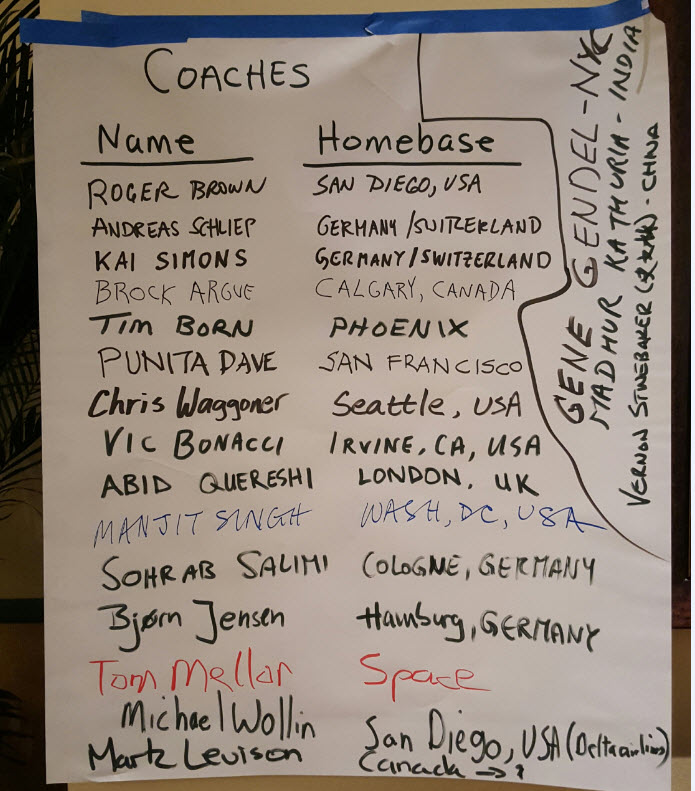 COACHES
Name Homebase
ROGER BROWN SAN DIEGO, USA
ANDREAS SCHLIEP GERMANY/SWITZERLAND
KAI SIMONS GERMANY/SWITZERLAND
BROCK ARGUE CALGARY, CANADA
TIM BORN PHOENIX
PUNITA DAVE SAN FRANCISCO
Chris Waggoner Seattle, USA
VIC BONACCI IRVINE, CA, USA
ABID QUERESHI LONDON, UK
MANJIT SINGH WASH, DC, USA
SOHRAB SALIMI COLOGNE, GERMANY
Bjørn Jensen Hamburg, GERMANY
Tom Mellor Space
Michael Wollin San Diego, USA (Delta airlines)
Mark Levison Canada → ?
GENE GENDEL - NYC
MADHUR KATHURIA - INDIA
VERNON STINEBAKER - CHINA